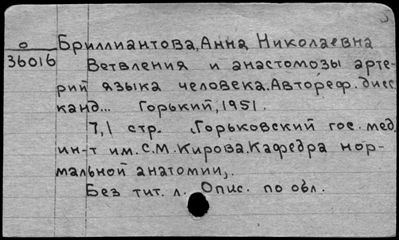 о Бриллиантова, Анна Николаевна
36016
Ветвления и анастомозы арте-
рий языка человека. Автореф. дисс.
канд... Горький, 1951.
7,1 стр. Горьковский гос. мед.
ин-т им. С.М. Кирова. Кафедра нор-
мальной анатомии,.
Без тит. л. Опис. по обл.